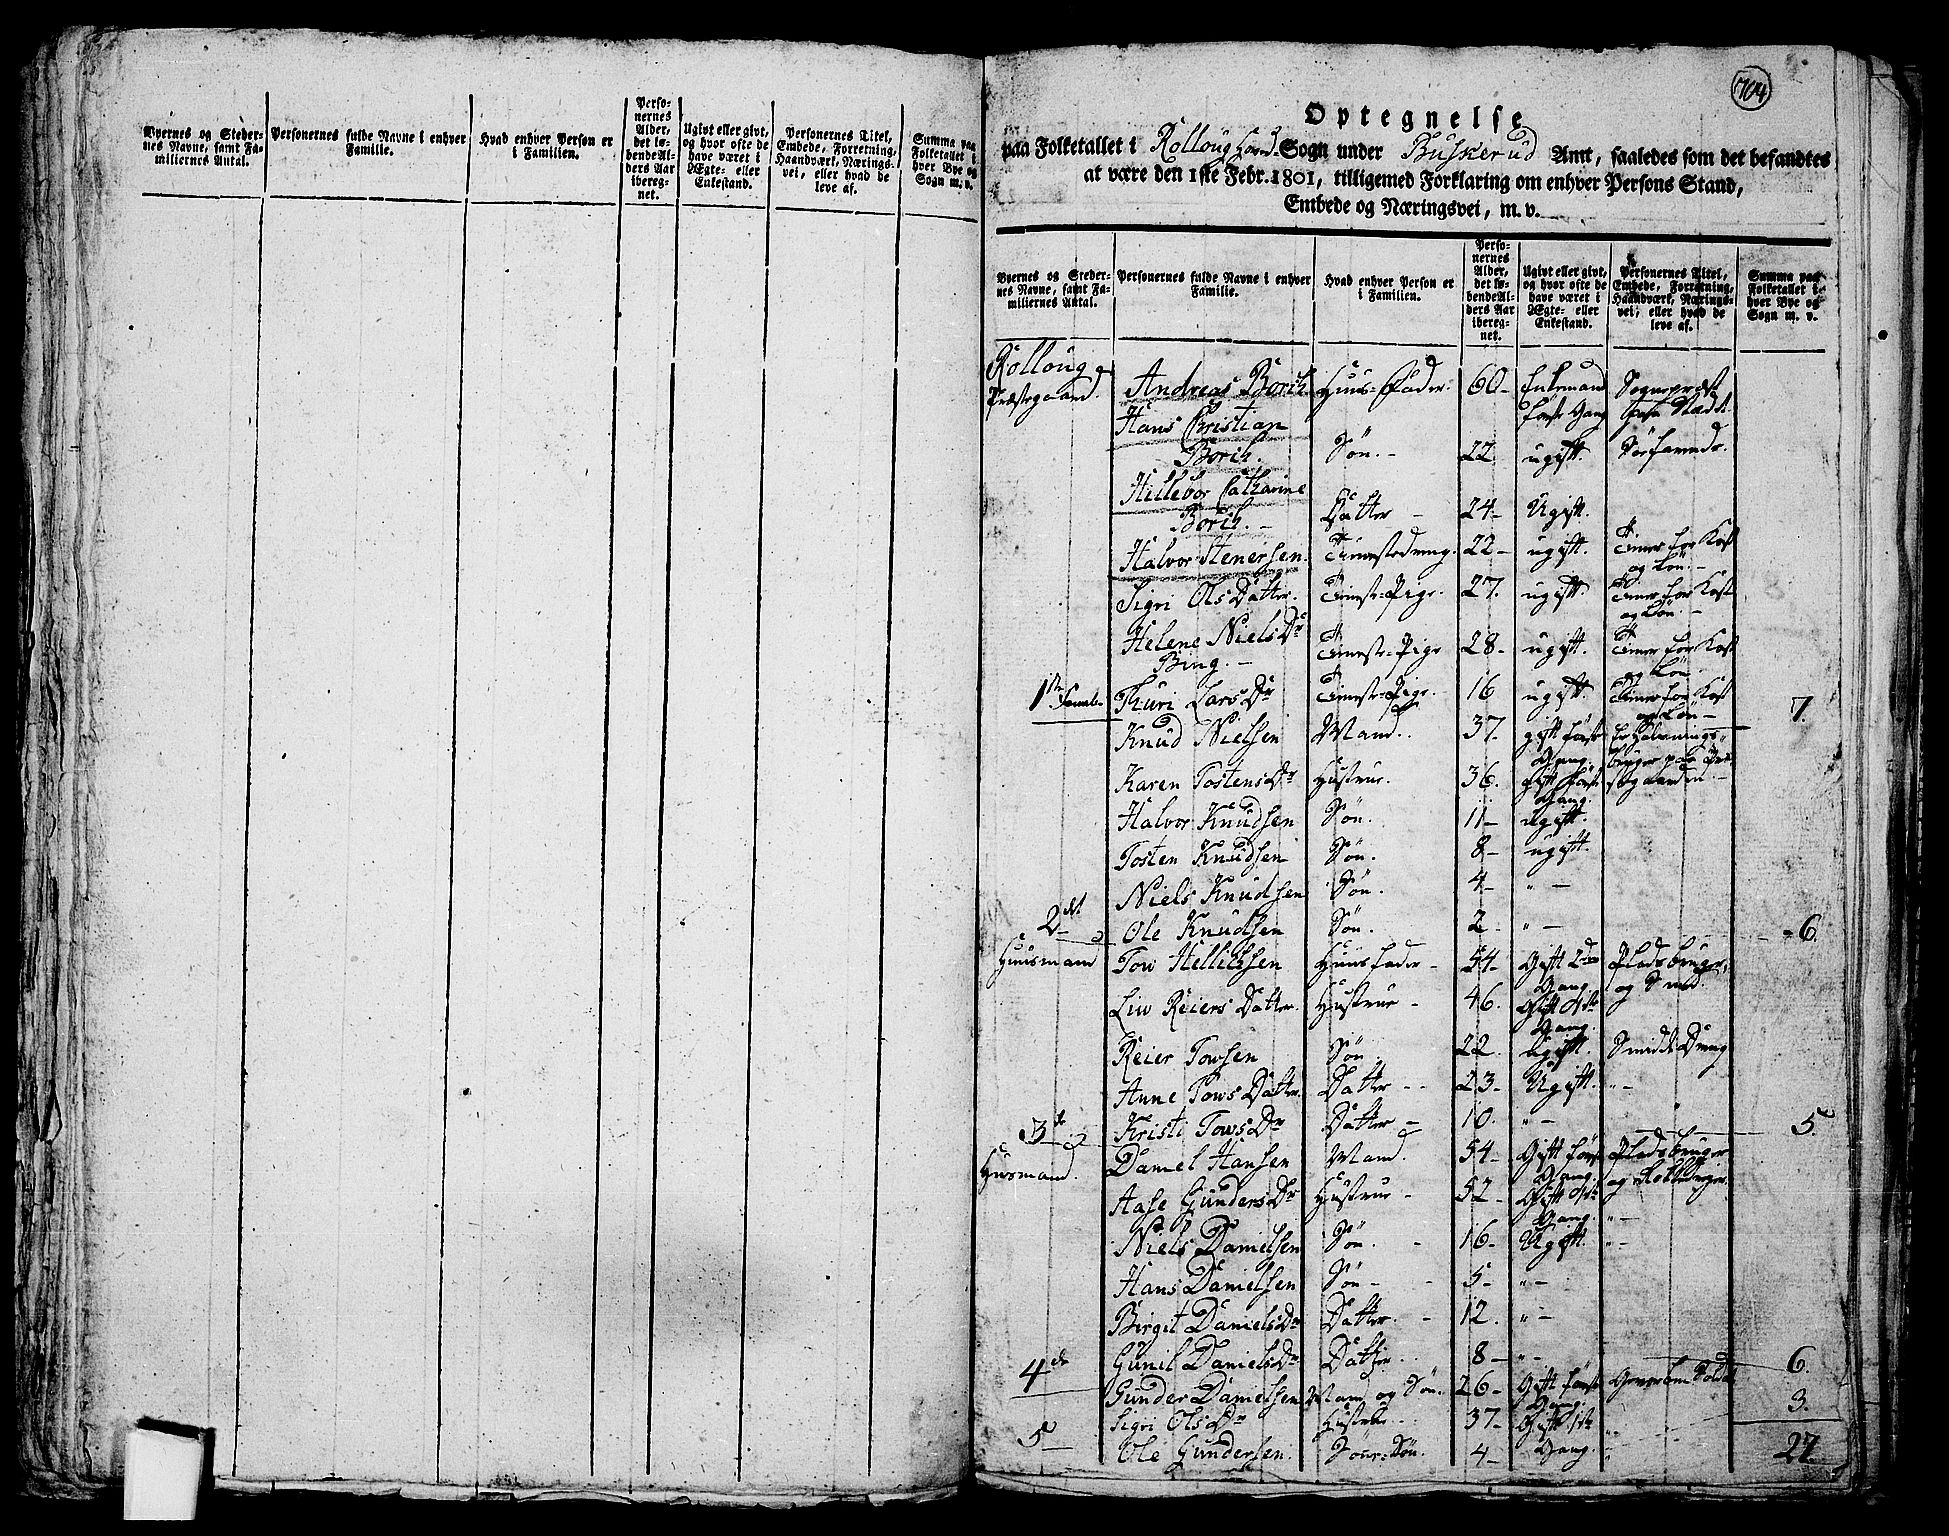 Byernes og Steder-
nes Navne, samt Fa-
miliernes Antal.
Personernes fulde Navne i enhver
Familie.
Hvad enhver Person er
i Familien.
Perso-
nernes
Alder,
det lø-
bende Al-
ders Aar
ibereg-
net.
Ugivt eller givt,
og hvor ofte de
have været i
Ægte- eller
Enkestand.
Personernes Titel,
Embede, Forretning,
Haandværk, Nærings-
vei, eller hvad de
leve af.
Summa paa
Folketallet i
hver Bye og
Sogn m. v.
704
Optegnelse
paa Folketallet i Rolloug Hoved Sogn under Buskerud Amt, saaledes som det befandtes
at være den 1ste Febr. 1801, tilligemed Forklaring om enhver Persons Stand,
Embede og Næringsvei, m. v.
Byernes og Steder-
nes Navne, samt Fa-
miliernes Antal.
Personernes fulde Navne i enhver
Familie.
Hvad enhver Person er
i Familien.
Perso-
nernes
Alder,
det lø-
bende Al-
ders Aar
ibereg-
net.
Ugivt eller givt,
og hvor ofte de
have været i
Ægte- eller
Enkestand.
Personernes Titel,
Embede, Forretning,
Haandværk, Nærings-
vei, eller hvad de
leve af.
Summa paa
Folketallet i
hver Bye og
Sogn m. v.
Rolloug
Præstegaard. Andreas Borch Huus-Fader 60 Enkemand Sognepræst
Hans Christian første Gang
Borch. Søn. 22. ugift.
Hillebor Catharine
Borch. Datter 24 Ugift.
Halvor Stenersen. Tienestedreng. 22 ugift. Tiener for Kost
og Løn.
Sigri Ols Datter. Tieneste-Pige. 27. ugift. Tiener for Kost
og Løn.
Helene Niels Dr Tieneste-Pige 28 ugift. Tiener for Kost
Bing. og Løn
1ste Famil. Thuri Lars Dr Tieneste-Pige. 16 ugift Tiener for Kost 7.
og Løn
Knud Nielsen Mand. 37. gift første
Gang.
Karen Tostens Dr Hustrue. 36. gift første
Gang.
Halvor Knudsen Søn. 11 ugift.
Tosten Knudsen Søn. 8 ugift.
Niels Knudsen Søn. 4 " -
2det Ole Knudsen Søn. 2 " - 6.
Huusmand Tow Hellichsen Huusfader 54 Gift 2den Pladsbruger,
Gang. og Smed.
Liw Reiers Datter. Hustrue 46. Gift 1ste
Gang.
Reier Towsen Søn 22. Ugift. Smidde Dreng
Anne Tows Datter. Datter 23 Ugift. " -
3de Kristi Tows Dr Datter 10. " - 5.
Husmand. Daniel Hansen Mand. 54 Gift første Pladsbruger
Gang.
Aase Gunders Dr Hustrue 52 Gift 1ste
Gang. " -
Niels Danielsen Søn. 16 Ugift. " -
Hans Danielsen Søn 5 " -
Birgit Daniels Dr Datter. 12. " -
4de Gunil Daniels Dr Datter. 8 " - 6.
Gunder Danielsen Mand og Søn. 26 Gift første
Gang. 3.
Sigri Ols Dr Hustrue 37 Gift 1ste
5 Ole Gundersen. Søn 4 Gang 27.